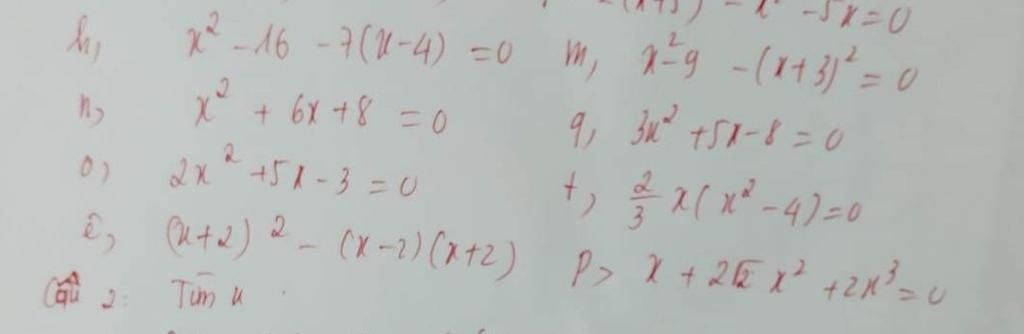 - x² - 5x = 0
h, x² - 16 - 7(x - 4) = 0
m, x² - 9 - (x + 3)² = 0
n, x² + 6x + 8 = 0
q, 3x² + 5x - 8 = 0
o, 2x² + 5x - 3 = 0
t, 2/3 x(x² - 4) = 0
ê, (x + 2)² - (x - 2)(x + 2)
p> x + 2√2 x² + 2x³ = 0
Câu 2: Tìm x